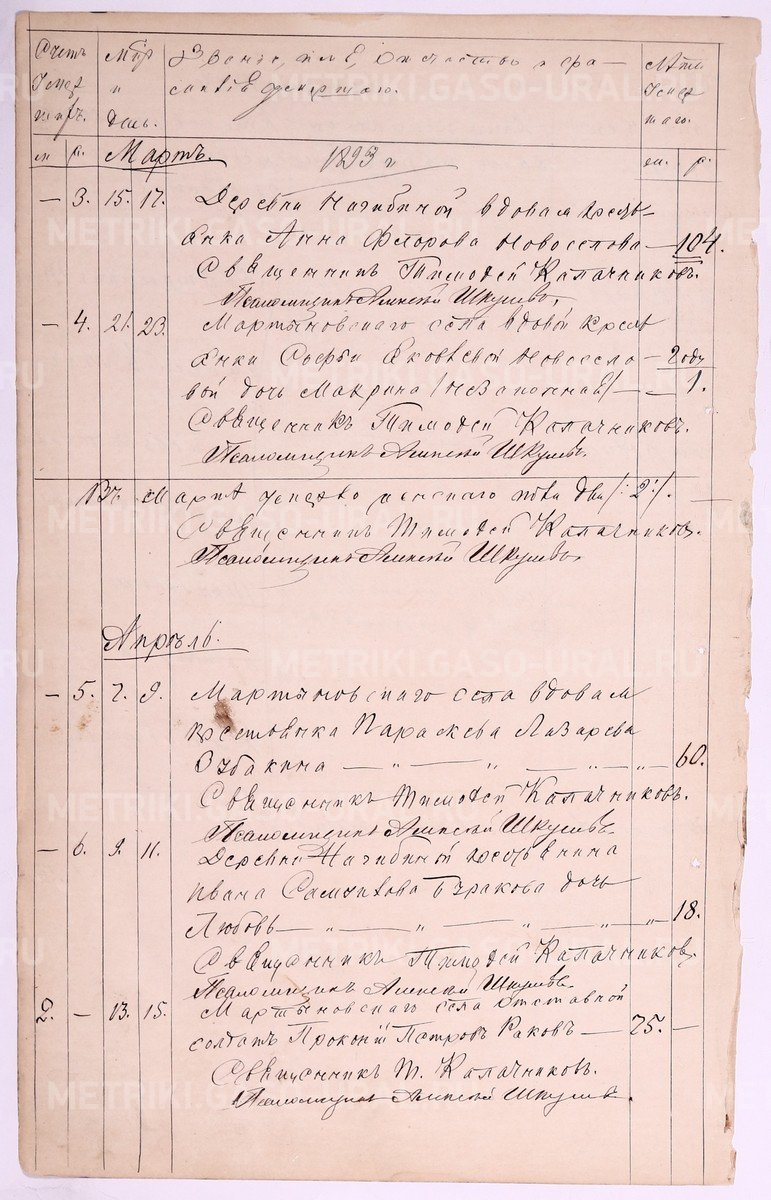 Счетъ умерш. Мѣр и День. Званіе, имя, отчество и фамилія умершаго. Лѣта умершаго.
м. р. Мартъ. 1893 г м. р.
— 3. 15. 17. Деревни Нагибиной вдовая кресть-
янка Анна Флорова Новоселова — 104.
Священникъ Тимофей Калачниковъ.
Псаломщикъ Алексѣй Шкулевъ.
— 4. 21. 23. Мартыновскаго села вдовой кресть
янки Софьи Яковлевой Новосело — Году
вой дочь Макрина /незаконная/ — — 1.
Священникъ Тимофей Калачниковъ.
Псаломщикъ Алексѣй Шкулевъ.
Въ Мартѣ умерло женскаго пола два /:2:/.
Священникъ Тимофей Калачниковъ.
Псаломщикъ Алексѣй Шкулевъ.
Апрѣль.
— 5. 7. 9. Мартыновскаго села вдовая
крестьянка Параскева Лазарева
— „ — „ — „ — „ — 60.
Священникъ Тимофей Калачниковъ.
Псаломщикъ Алексѣй Шкулевъ.
— 6. 9. 11. Деревни Нагибиной крестьянина
Ивана дочь
Любовь — „ — „ — „ — „ — „ — 18.
Священникъ Тимофей Калачниковъ.
Псаломщикъ Алексѣй Шкулевъ.
2. — 13. 15. Мартыновскаго села отставной
солдатъ Прокопій Петровъ Раковъ — 75. —
Священникъ Т. Калачниковъ.
Псаломщикъ Алексѣй Шкулевъ.
METRIKI.GASO-URAL.RU